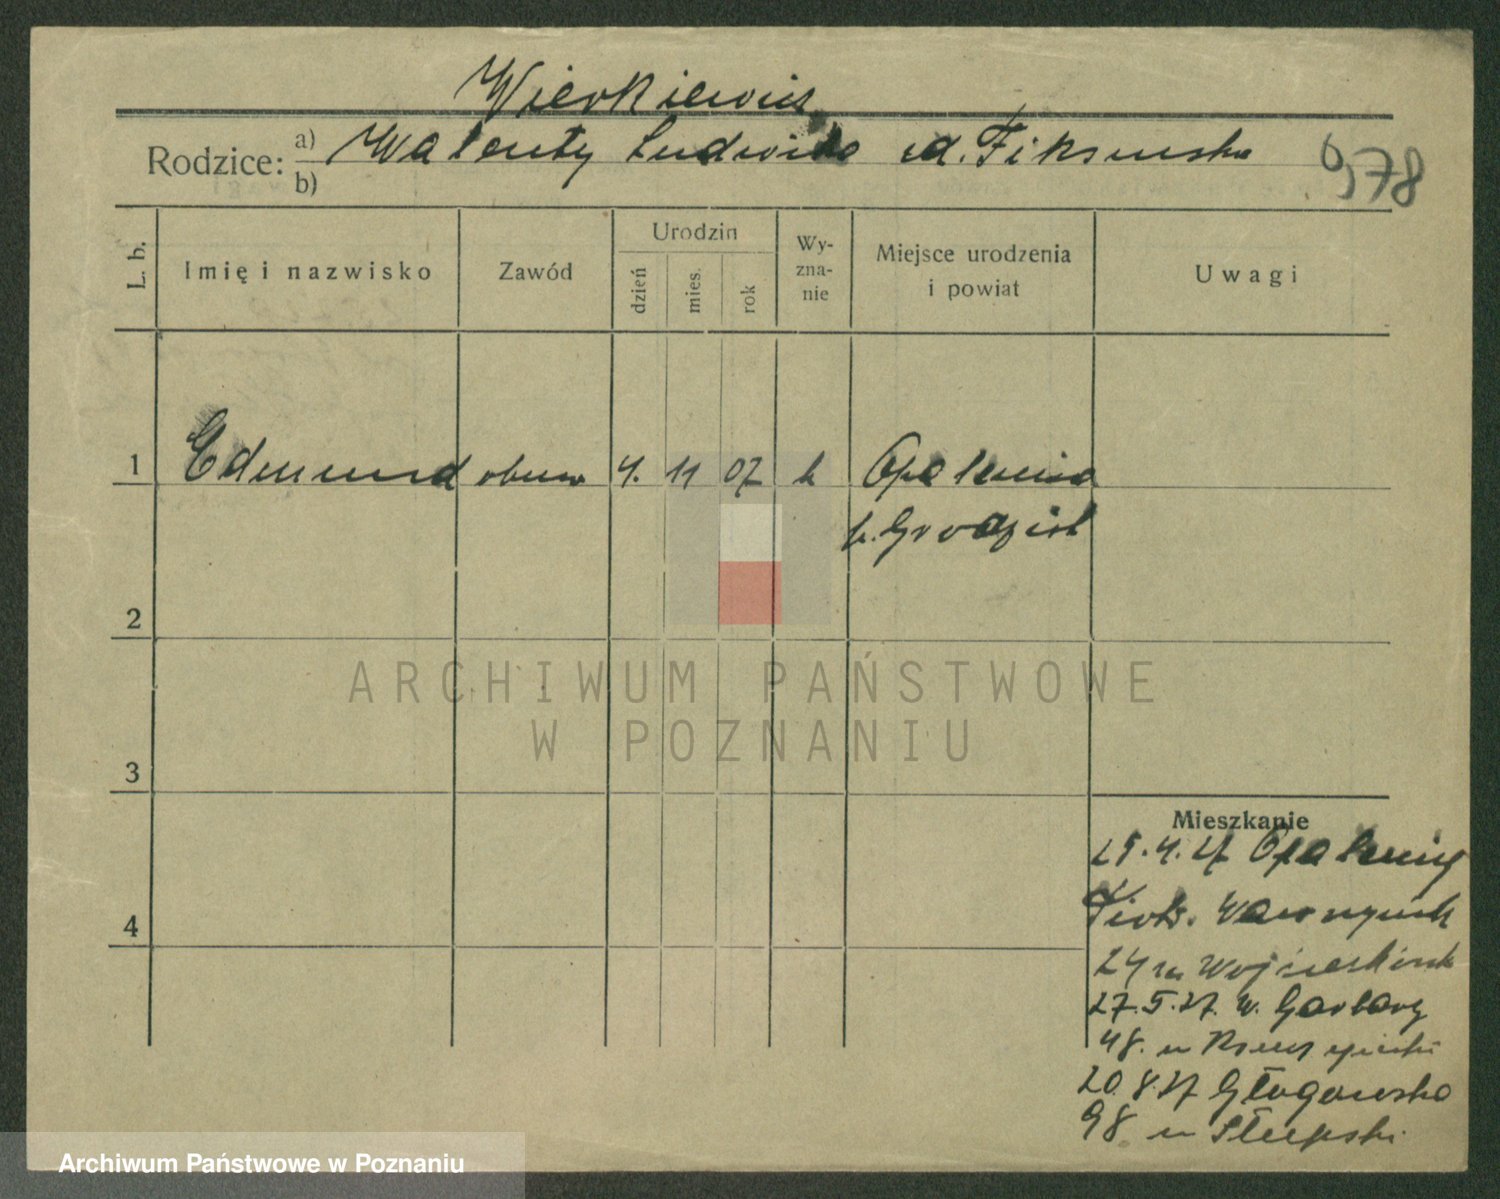 Wierkiewicz
Rodzice: a) Walenty Ludwika zd. Fiksinska
b)
978
L. b.
Imię i nazwisko
Zawód
Urodzin
dzień
mies.
rok
Wy-
zna-
nie
Miejsce urodzenia
i powiat
Uwagi
1 Edmund obuw 4. 11 07 k Opalenica
p. Grodzisk
2
3
4
Mieszkanie
25.4.27 Opalenicy
Piotr. Wawrzyniak
24 m
27.5.27. W. Garbary
48. m
20.8.27 Głogowska
98 m Słupski
ARCHIWUM PAŃSTWOWE
W POZNANIU
Archiwum Państwowe w Poznaniu